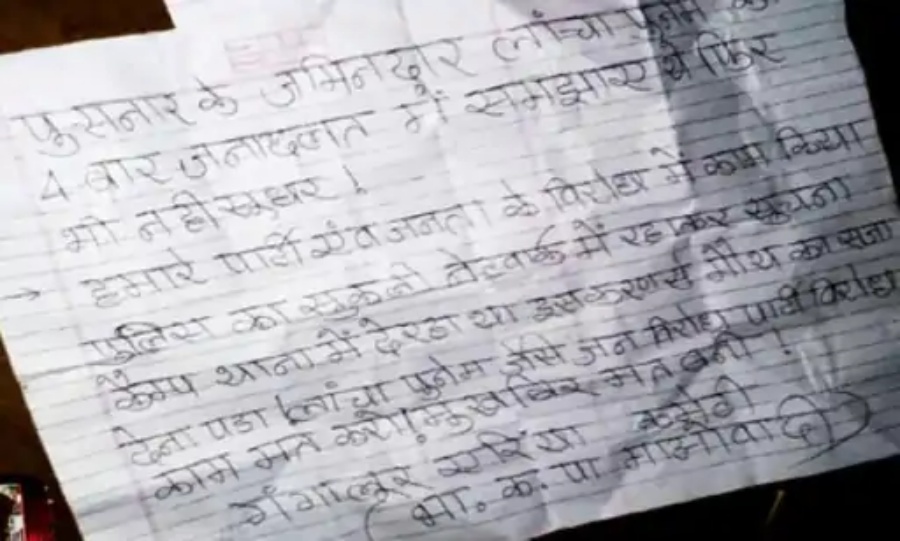 पुसनार के जमिनदार लांचा पुनेम को
4 बार जनाद्लत में समझाए थे फिर
भी नही सुधर !
→ हमारे पार्टी एंव जनता के विरोध में काम किया
पुलिस का नेटवर्क में रहकर सुचना
कैम्प थाना में देरहा था इसकरणसे मौथ का सजा
देना पडा ! लांचा पुनेम जैसे जन विरोध पार्टी विरोध
काम मत करो ! मुखबिर मत बनो !
गंगालूर एरिया कमेटी
(भा. क. पा माओवादी)